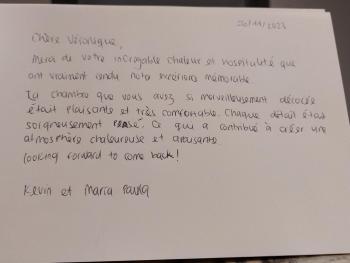 26/11/2023
Chère Véronique,
Merci de votre incroyable chaleur et hospitalité que
ont vraiment rendu notre expérience mémorable.
La chambre que vous avez si merveilleusement décorée
était plaisante et très comfortable. Chaque détail était
soigneusement pensé. Ce qui a contribué à créer une
atmosphère chaleureuse et apaisante.
looking forward to come back!
Kevin et Maria Paula